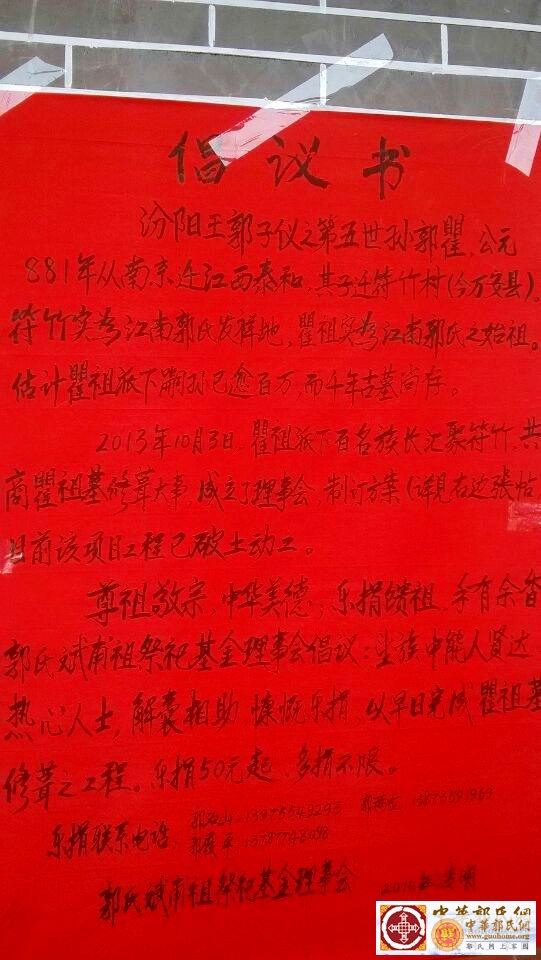 倡议书
汾阳王郭子仪之第五世孙郭瞿,公元
881年从南京迁江西泰和,其子迁符竹村(今万安县)。
符竹实为江南郭氏发祥地,瞿祖实为江南郭氏之始祖。
估计瞿祖派下嗣孙已愈百万,而千年古墓尚存。
2013年10月3日,瞿祖派下百名族长汇聚符竹,共
商瞿祖墓修葺大事,成立了理事会,制订方案(详见右边张帖
目前该项目工程已破土动工。
尊祖敬宗,中华美德;乐捐绩祖,手有余香
郭氏斌甫祖祭祀基金理事会倡议:坐族中能人贤达
热心人士,解囊相助,慷慨乐捐,以早日完成瞿祖墓
修葺之工程。乐捐50元起,多捐不限。
乐捐联系电话
郭氏斌甫祖祭祀基金理事会
中華郭氏網
www.guohome.org
郭氏網上家園